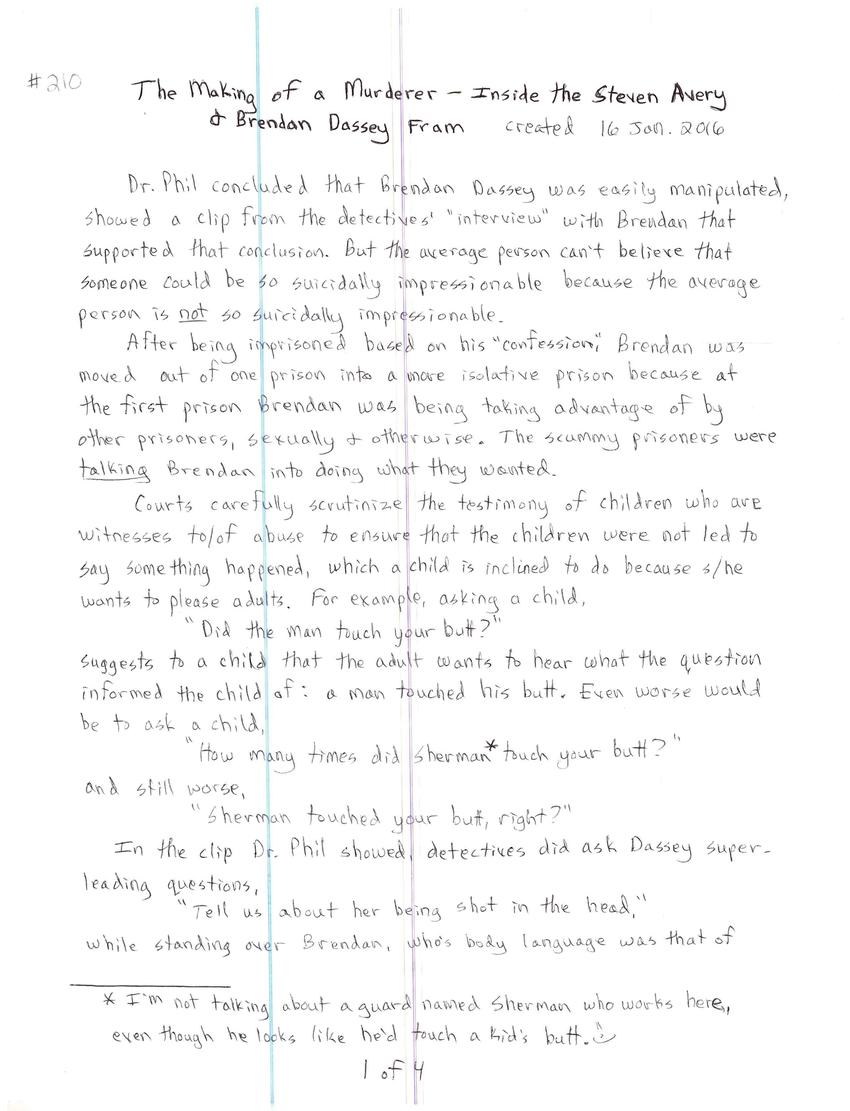 #210
The Making of a Murderer – Inside the Steven Avery
& Brendan Dassey Fram created 16 Jan. 2016
Dr. Phil concluded that Brendan Dassey was easily manipulated,
showed a clip from the detectives' "interview" with Brendan that
supported that conclusion. But the average person can't believe that
someone could be so suicidally impressionable because the average
person is not so suicidally impressionable.
After being imprisoned based on his "confession," Brendan was
moved out of one prison into a more isolative prison because at
the first prison Brendan was being taking advantage of by
other prisoners, sexually & otherwise. The scummy prisoners were
talking Brendan into doing what they wanted.
Courts carefully scrutinize the testimony of children who are
witnesses to/of abuse to ensure that the children were not led to
say something happened, which a child is inclined to do because s/he
wants to please adults. For example, asking a child,
"Did the man touch your butt?"
suggests to a child that the adult wants to hear what the question
informed the child of: a man touched his butt. Even worse would
be to ask a child,
"How many times did Sherman* touch your butt?"
and still worse,
"Sherman touched your butt, right?"
In the clip Dr. Phil showed, detectives did ask Dassey super-
leading questions,
"Tell us about her being shot in the head,"
while standing over Brendan, who's body language was that of
* I'm not talking about a guard named Sherman who works here,
even though he looks like he'd touch a kid's butt. :)
1 of 4